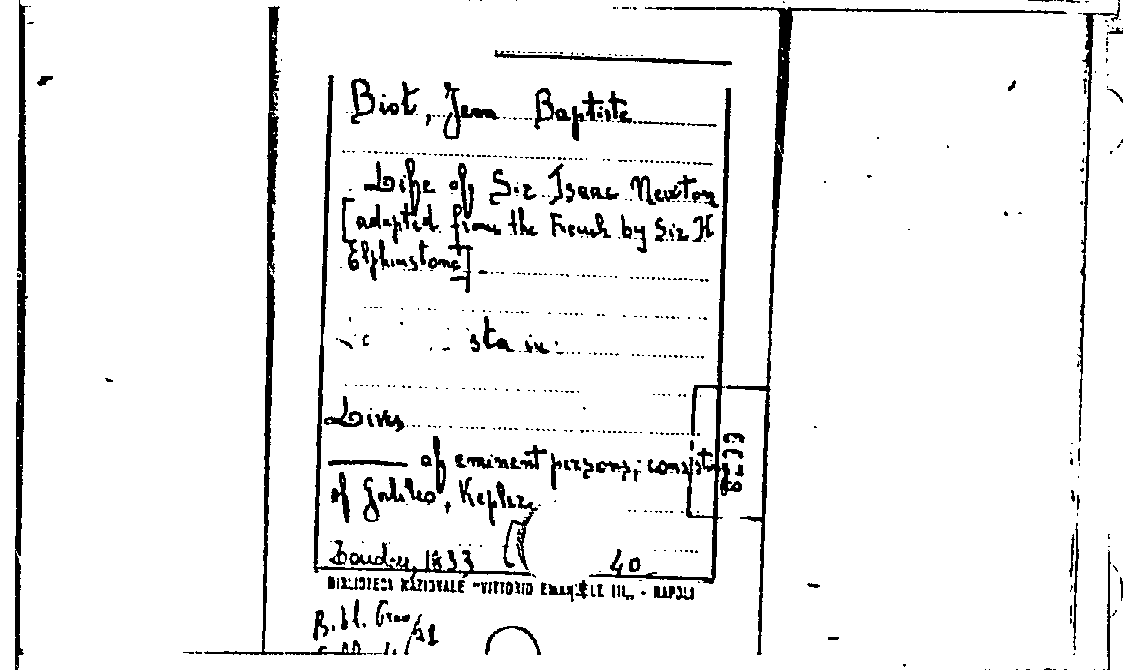 Biot, Jean Baptiste
Life of Sir Isaac Newton
[adapted from the French by Sir H
Elphinstone]
sta in:
Lives
of eminent persons; consisting
of Galileo, Kepler
London, 1833 40
BIBLIOTECA NAZIONALE "VITTORIO EMANUELE III" - NAPOLI